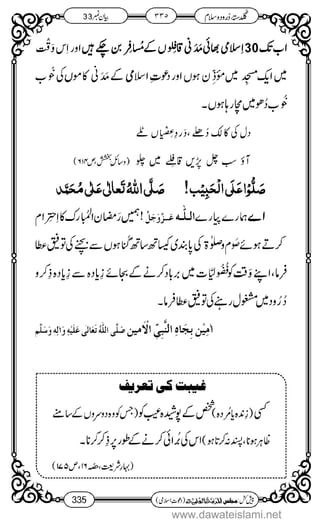 بیان نمبر 33 ۳۳۵ گلدستۂ درود و سلام
اب تک 30 اسلامی بھائی مَدَنی قافِلوں کے مُسافِر بن چکے ہیں اور اِس وَقت
میں ایک مسجد میں مُؤذِّن ہوں اور دعوتِ اسلامی کے مَدَنی کاموں کی خُوب
خُوب دُھومیں مچا رہا ہوں۔
دل کی کالک دُھلے، دَردِ عِصیاں ٹلے
آؤ سب چل پڑیں قافِلے میں چلو (وسائلِ بخشش، ص۶۱۴)
صَلُّوْا عَلَی الْحَبِیْب! صَلَّی اللهُ تَعَالٰی عَلٰی مُحَمَّد
اے ہمارے پیارے اللہ عَزَّوَجَلَّ! ہمیں رَمَضانُ المُبارَک کا اِحترام
کرتے ہوئے صَوم و صَلٰوۃ کی پابندی کے ساتھ ساتھ گُناہوں سے بچنے کی توفیق عطا
فرما، اپنے وَقت کو فُضُولیّات میں برباد کرنے کے بجائے زیادہ سے زیادہ ذِکر و
دُرُود میں مشغول رہنے کی توفیق عطا فرما۔
اٰمِیْن بِجَاہِ النَّبِیِّ الْاَمِیْن صَلَّی اللهُ تَعَالٰی عَلَیْہِ وَاٰلِہٖ وَسَلَّم
غیبت کی تعریف
کسی (زِندہ یا مُردہ) شخص کے پوشیدہ عیب کو (جس کو وہ دوسروں کے سامنے
ظاہر ہونا پسند نہ کرتا ہو) اس کی بُرائی کرنے کے طور پر ذِکر کرنا۔
(بہارِ شریعت، حصّہ ۱۶، ص ۱۷۵)
335
(دعوتِ اسلامی)
www.dawateislami.net